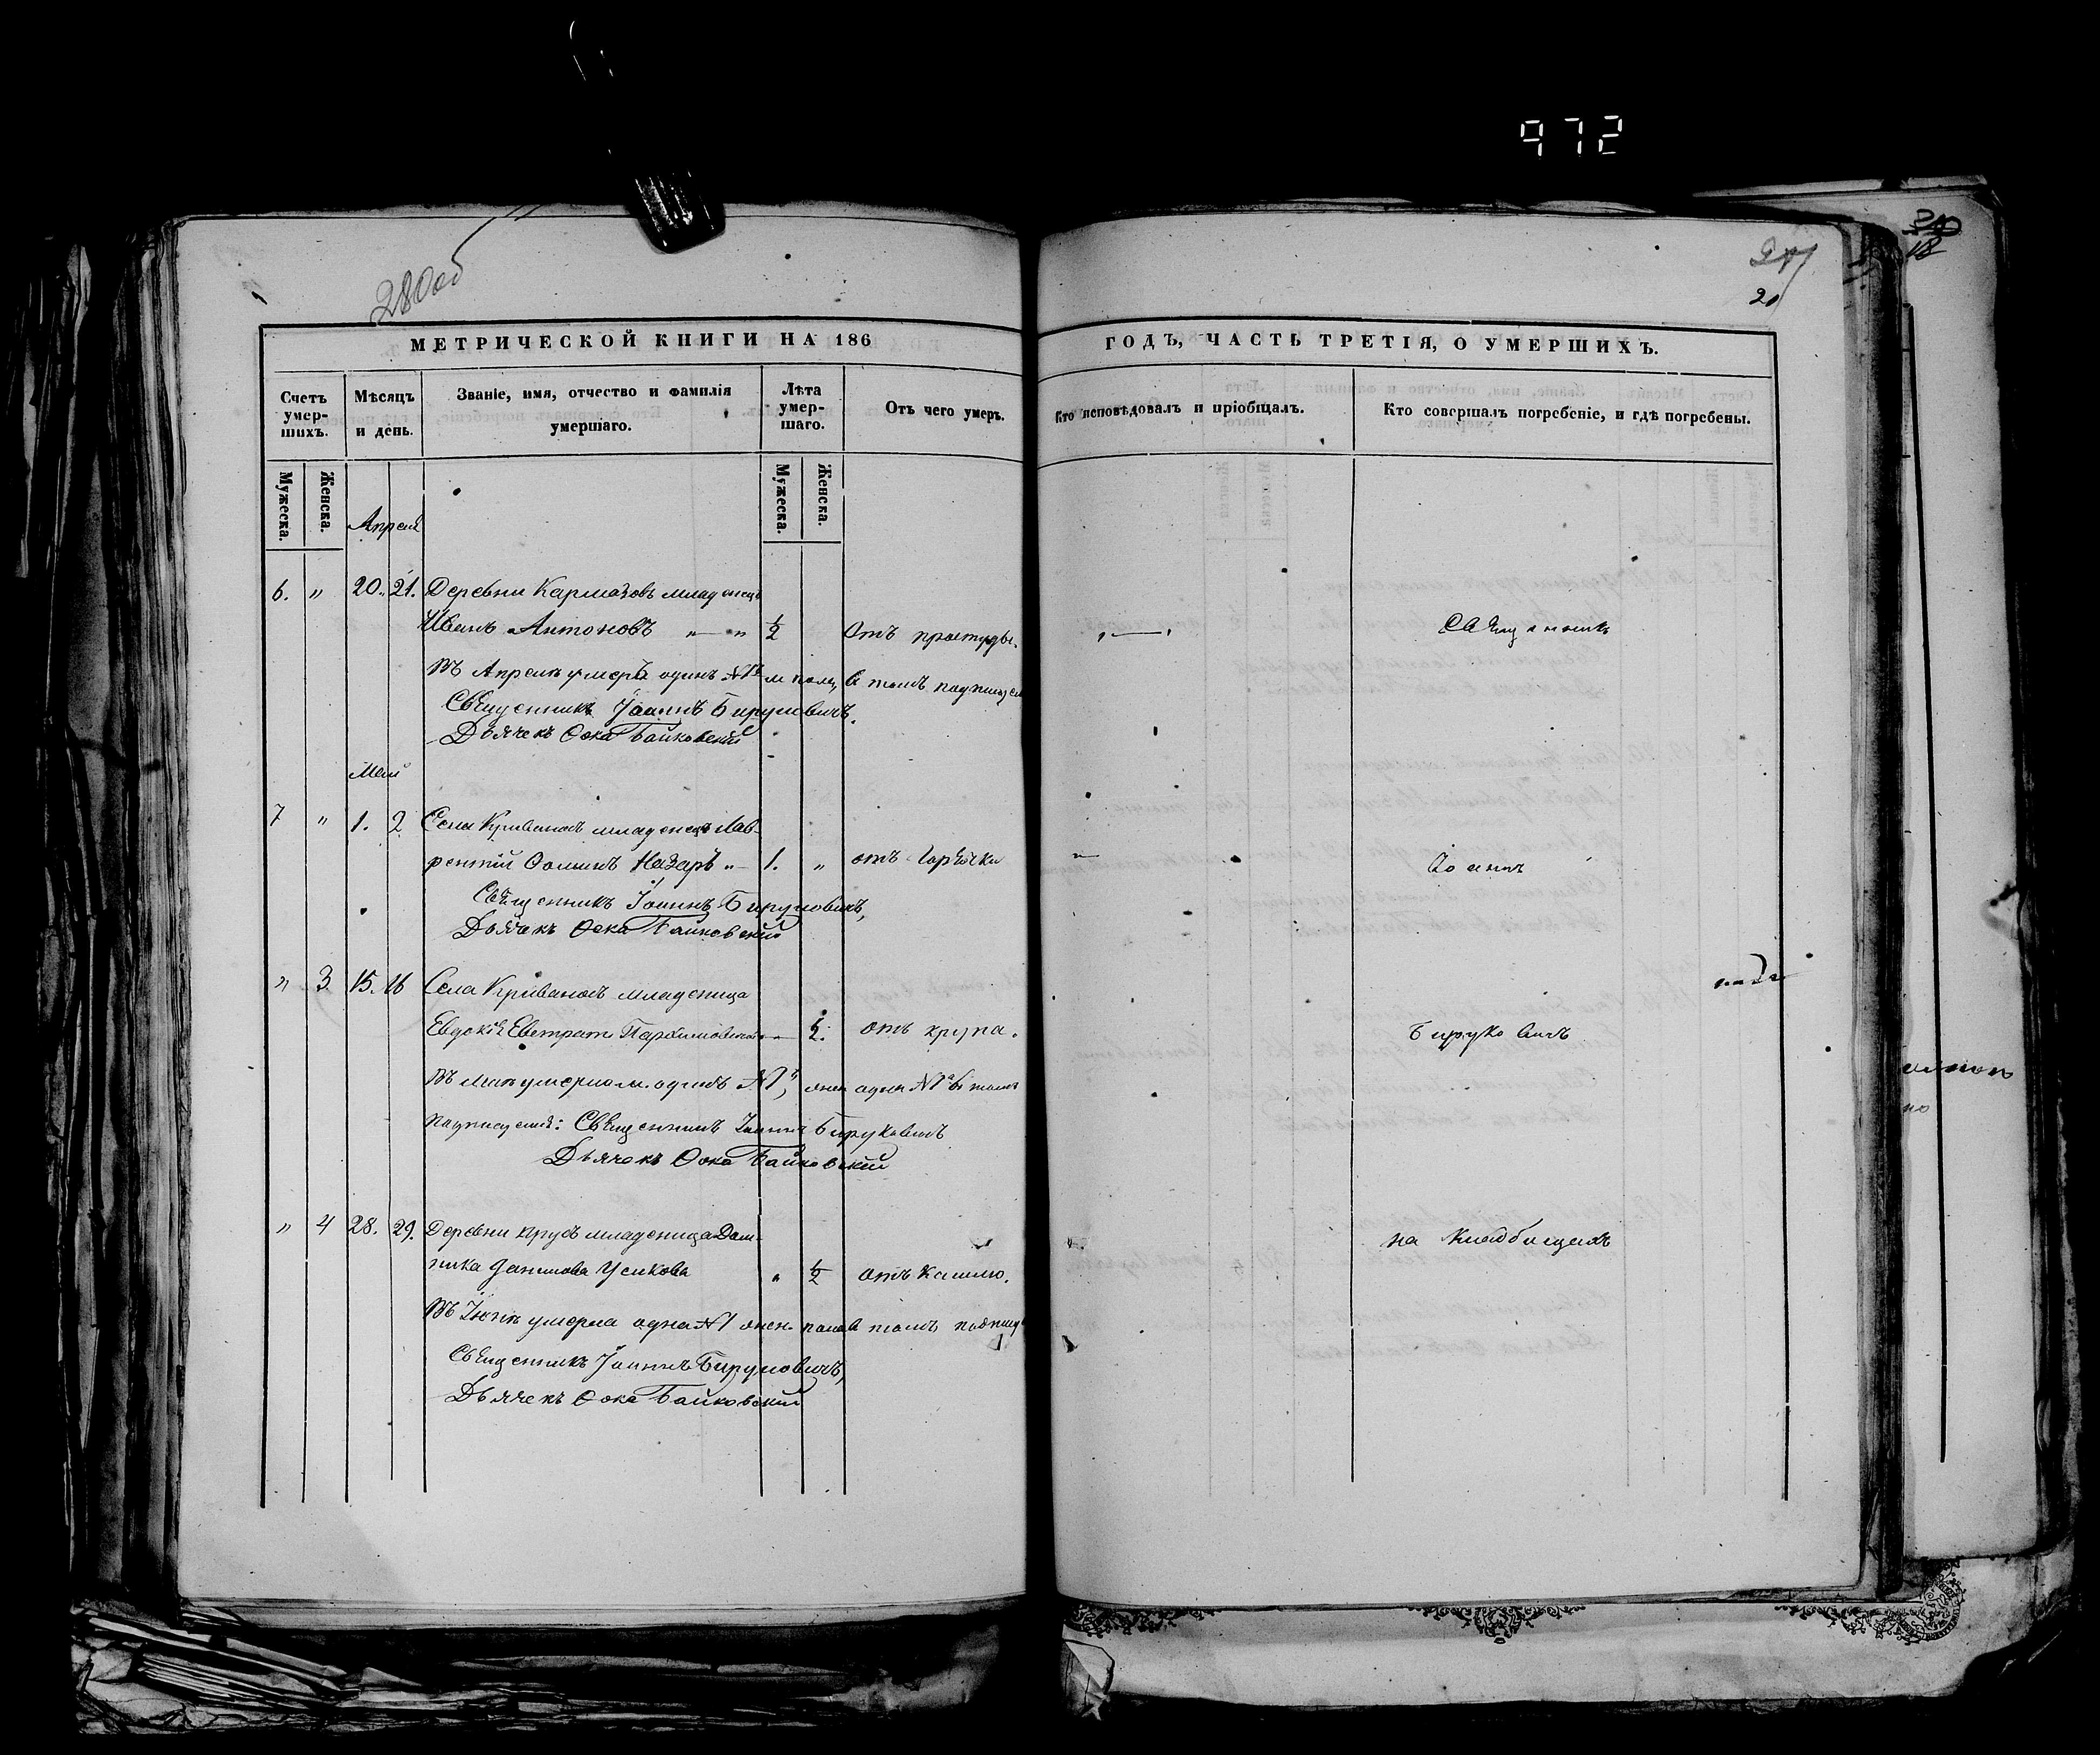 972
280об
20
18
МЕТРИЧЕСКОЙ КНИГИ НА 186
ГОДЪ, ЧАСТЬ ТРЕТІЯ, О УМЕРШИХЪ.
Счетъ умер-шихъ.
Мѣсяцъ и день.
Званіе, имя, отчество и фамилія умершаго.
Лѣта умер-шаго.
Отъ чего умеръ.
Кто исповѣдовалъ и пріобщалъ.
Кто совершалъ погребеніе, и гдѣ погребены.
Мужеска.
Женска.
Мужеска.
Женска.
Апрель
6. " 20. 21. Деревни Кармазовъ младенецъ
Иванъ Антоновъ " — " 1/2 Отъ простуды. Священникъ
Въ Апрелѣ умеръ одинъ №1ъ м пола, въ томъ подпис
Священникъ Іоаннъ Бируковичъ.
Дьячекъ Ѳока Байковскій
Май
7 " 1. 2 Села Кривановъ младенецъ Лав-
рентій Ѳоминъ Назаръ " — 1. " отъ Горячки Іоаннъ
Священникъ Іоаннъ Бируковичъ,
Дьячекъ Ѳока Байковскій
" 3 15. 16 Села Кривановъ младеница
Евдокія Евстрат — 1/2. отъ крупа. Бируковичъ
Въ Маѣ умерло м. одинъ №1ъ, жен одна №1а въ томъ
подписуемся: Священникъ Іоаннъ Бируковичъ
Дьячекъ Ѳока Байковскій
" 4 28. 29. Деревни младеница Дом-
ника Данилова Усикова " 1/2 отъ Кашлю. на кладбищахъ
Въ Іюнѣ умерла одна №1 жен. пола въ томъ подпису
Священникъ Іоаннъ Бируковичъ,
Дьячекъ Ѳока Байковскій